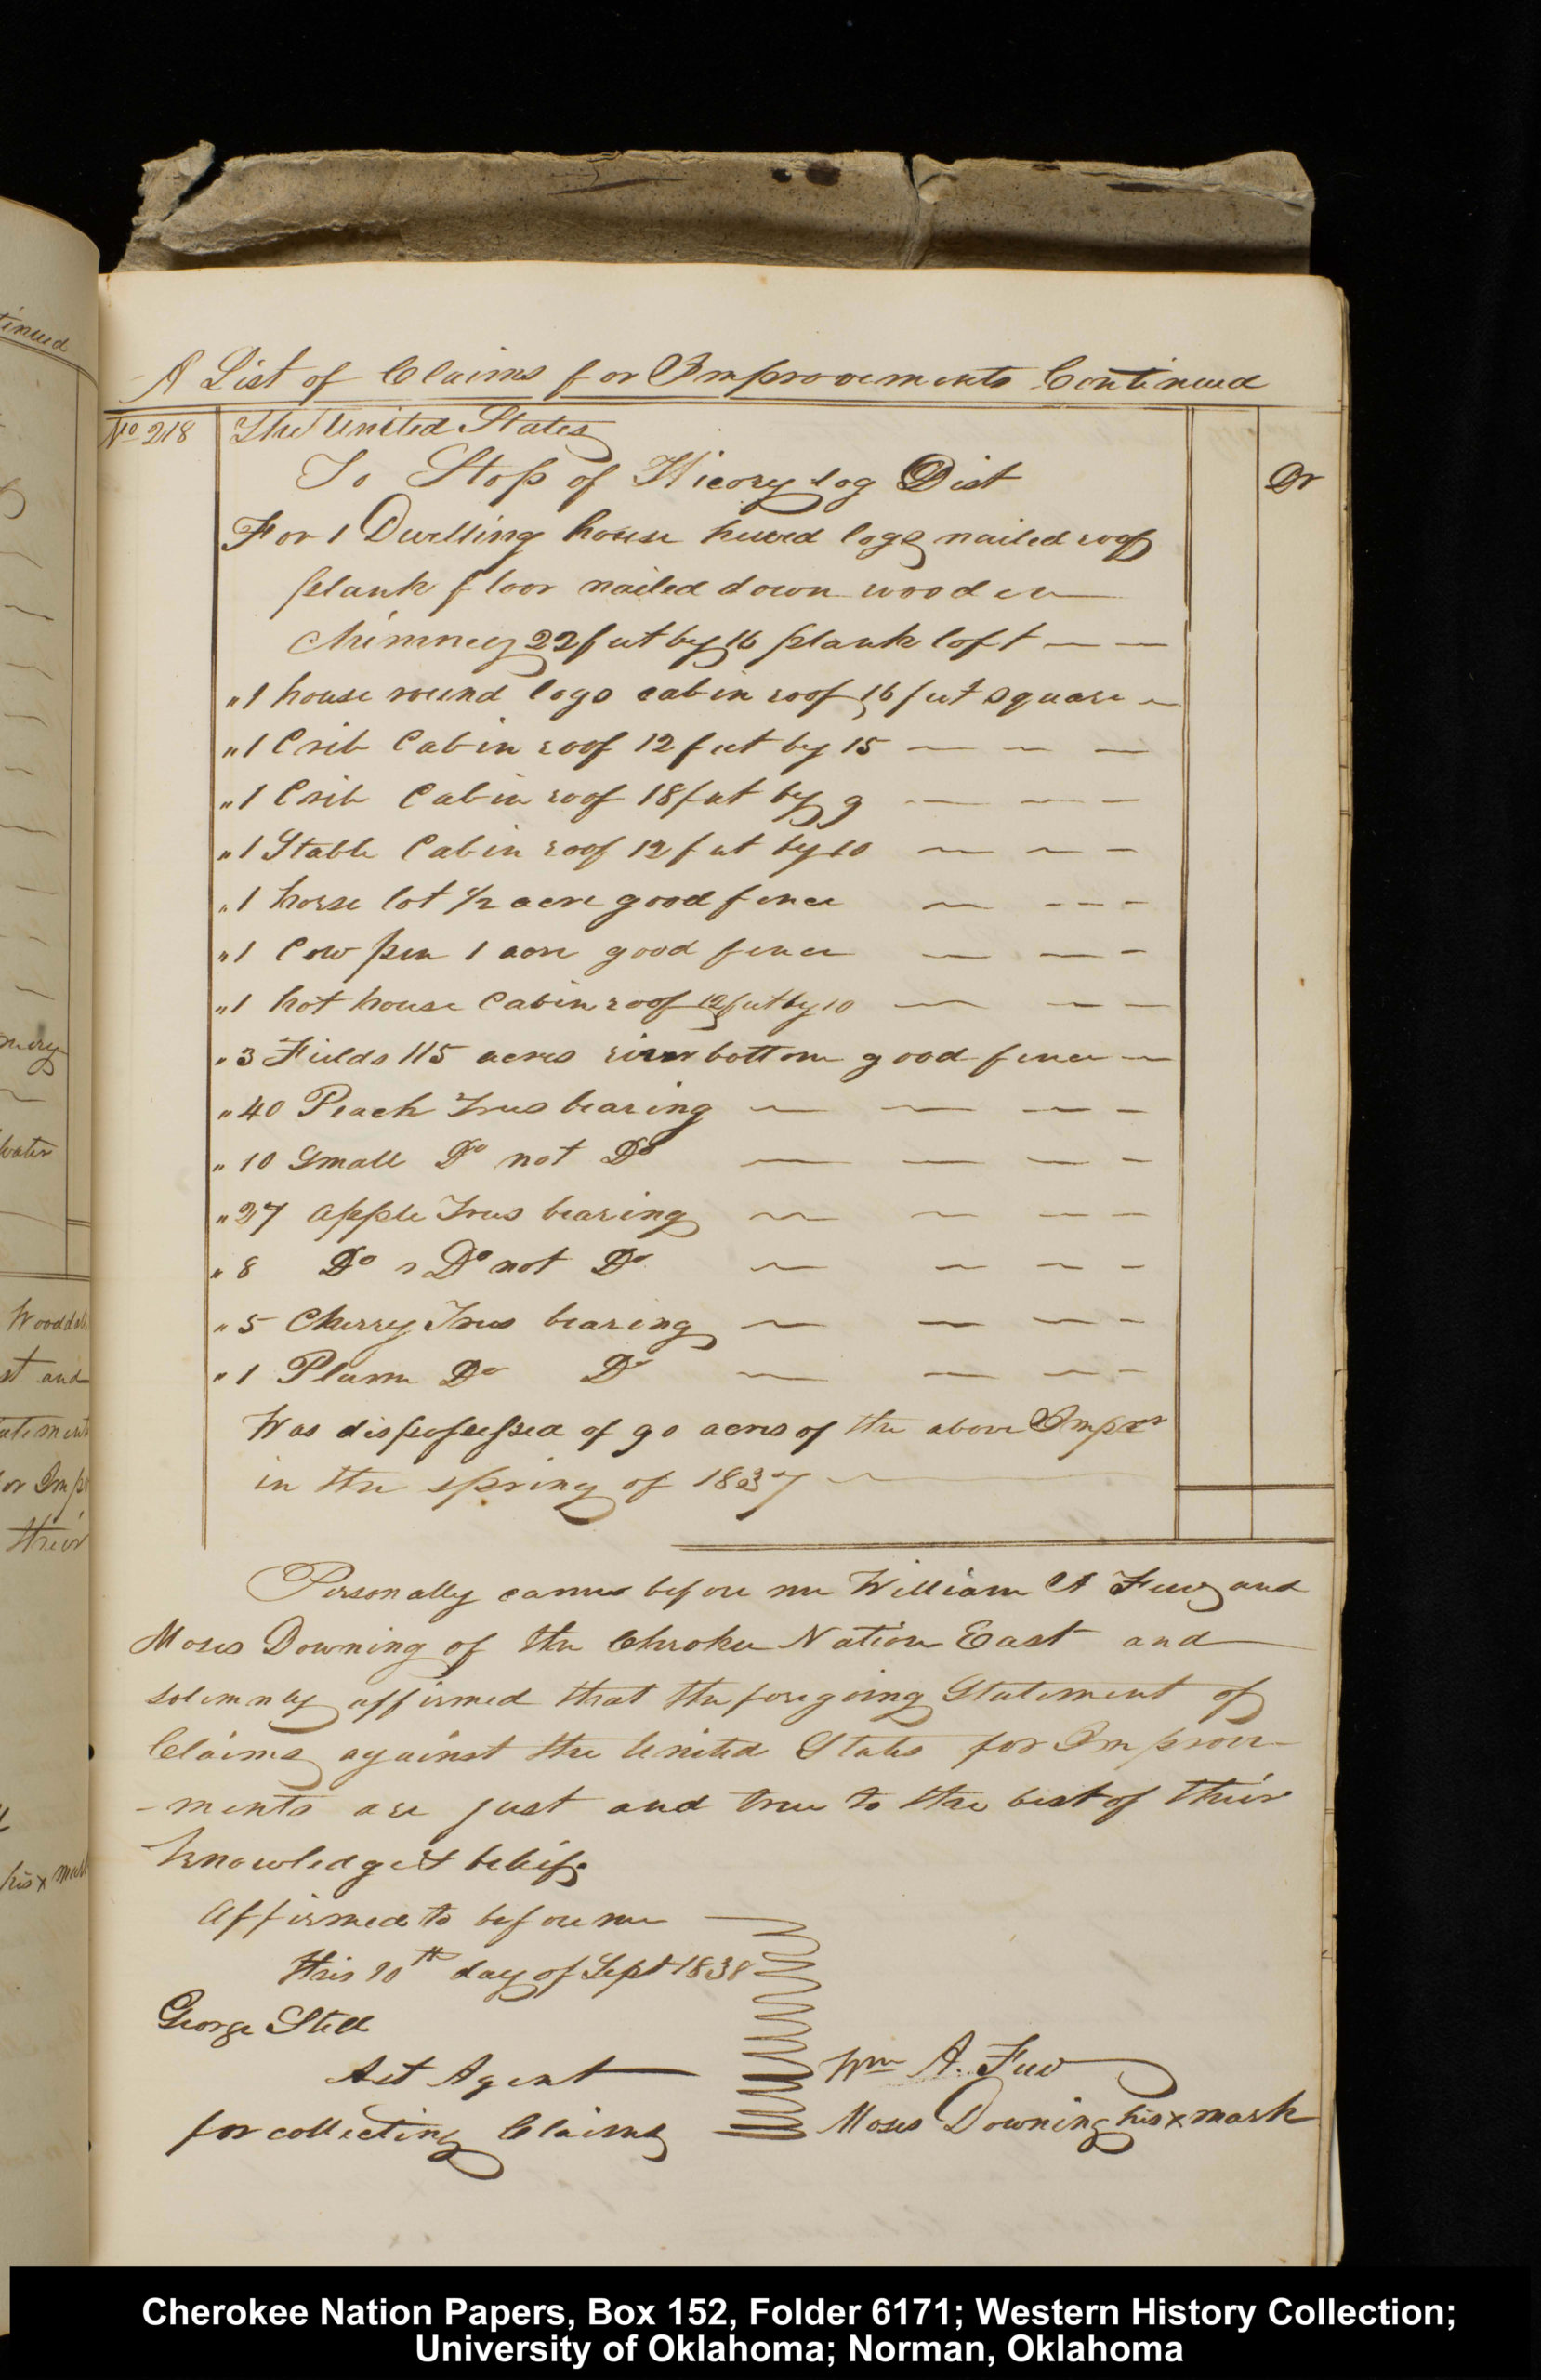 A List of Claims for Improvements Continued
No 218 The United States
To Stop of Hicory log Dist Dr
For 1 Dwelling house hewed logs nailed roof
plank floor nailed down wooden
chimney 22 feet by 16 plank loft — —
" 1 house round logs cabin roof 16 feet square —
" 1 Crib Cabin roof 12 feet by 15 — — —
" 1 Crib Cabin roof 18 feet by 9 — — —
" 1 Stable Cabin roof 12 feet by 10 — — —
" 1 horse lot 1/2 acre good fence — - - -
" 1 Cow pen 1 acre good fence — — -
" 1 hot house Cabin roof 12 feet by 10 — — —
" 3 Fields 115 acres river bottom good fence —
" 40 Peach Trees bearing — — — -
" 10 Small Do not Do — — — -
" 27 apple Trees bearing — — — -
" 8 Do " Do not Do — — — -
" 5 Cherry Trees bearing — — — -
" 1 Plum Do Do — — — -
Was dispossessed of 90 acres of the above Imprs
in the spring of 1837 —
Personally came before me William A Few and
Moses Downing of the Cherokee Nation East and
solemnly affirmed that the foregoing Statement of
Claims against the United States for Improve-
-ments are just and true to the best of their
knowledge & belief.
Affirmed to before me —
this 10th day of Sept 1838
George Still
Act Agent
for collecting Claims
Wm A. Few
Moses Downing his x mark
tinued
water
Woodall
st and
atement
or Imp
their
his x mark
Cherokee Nation Papers, Box 152, Folder 6171; Western History Collection;
University of Oklahoma; Norman, Oklahoma